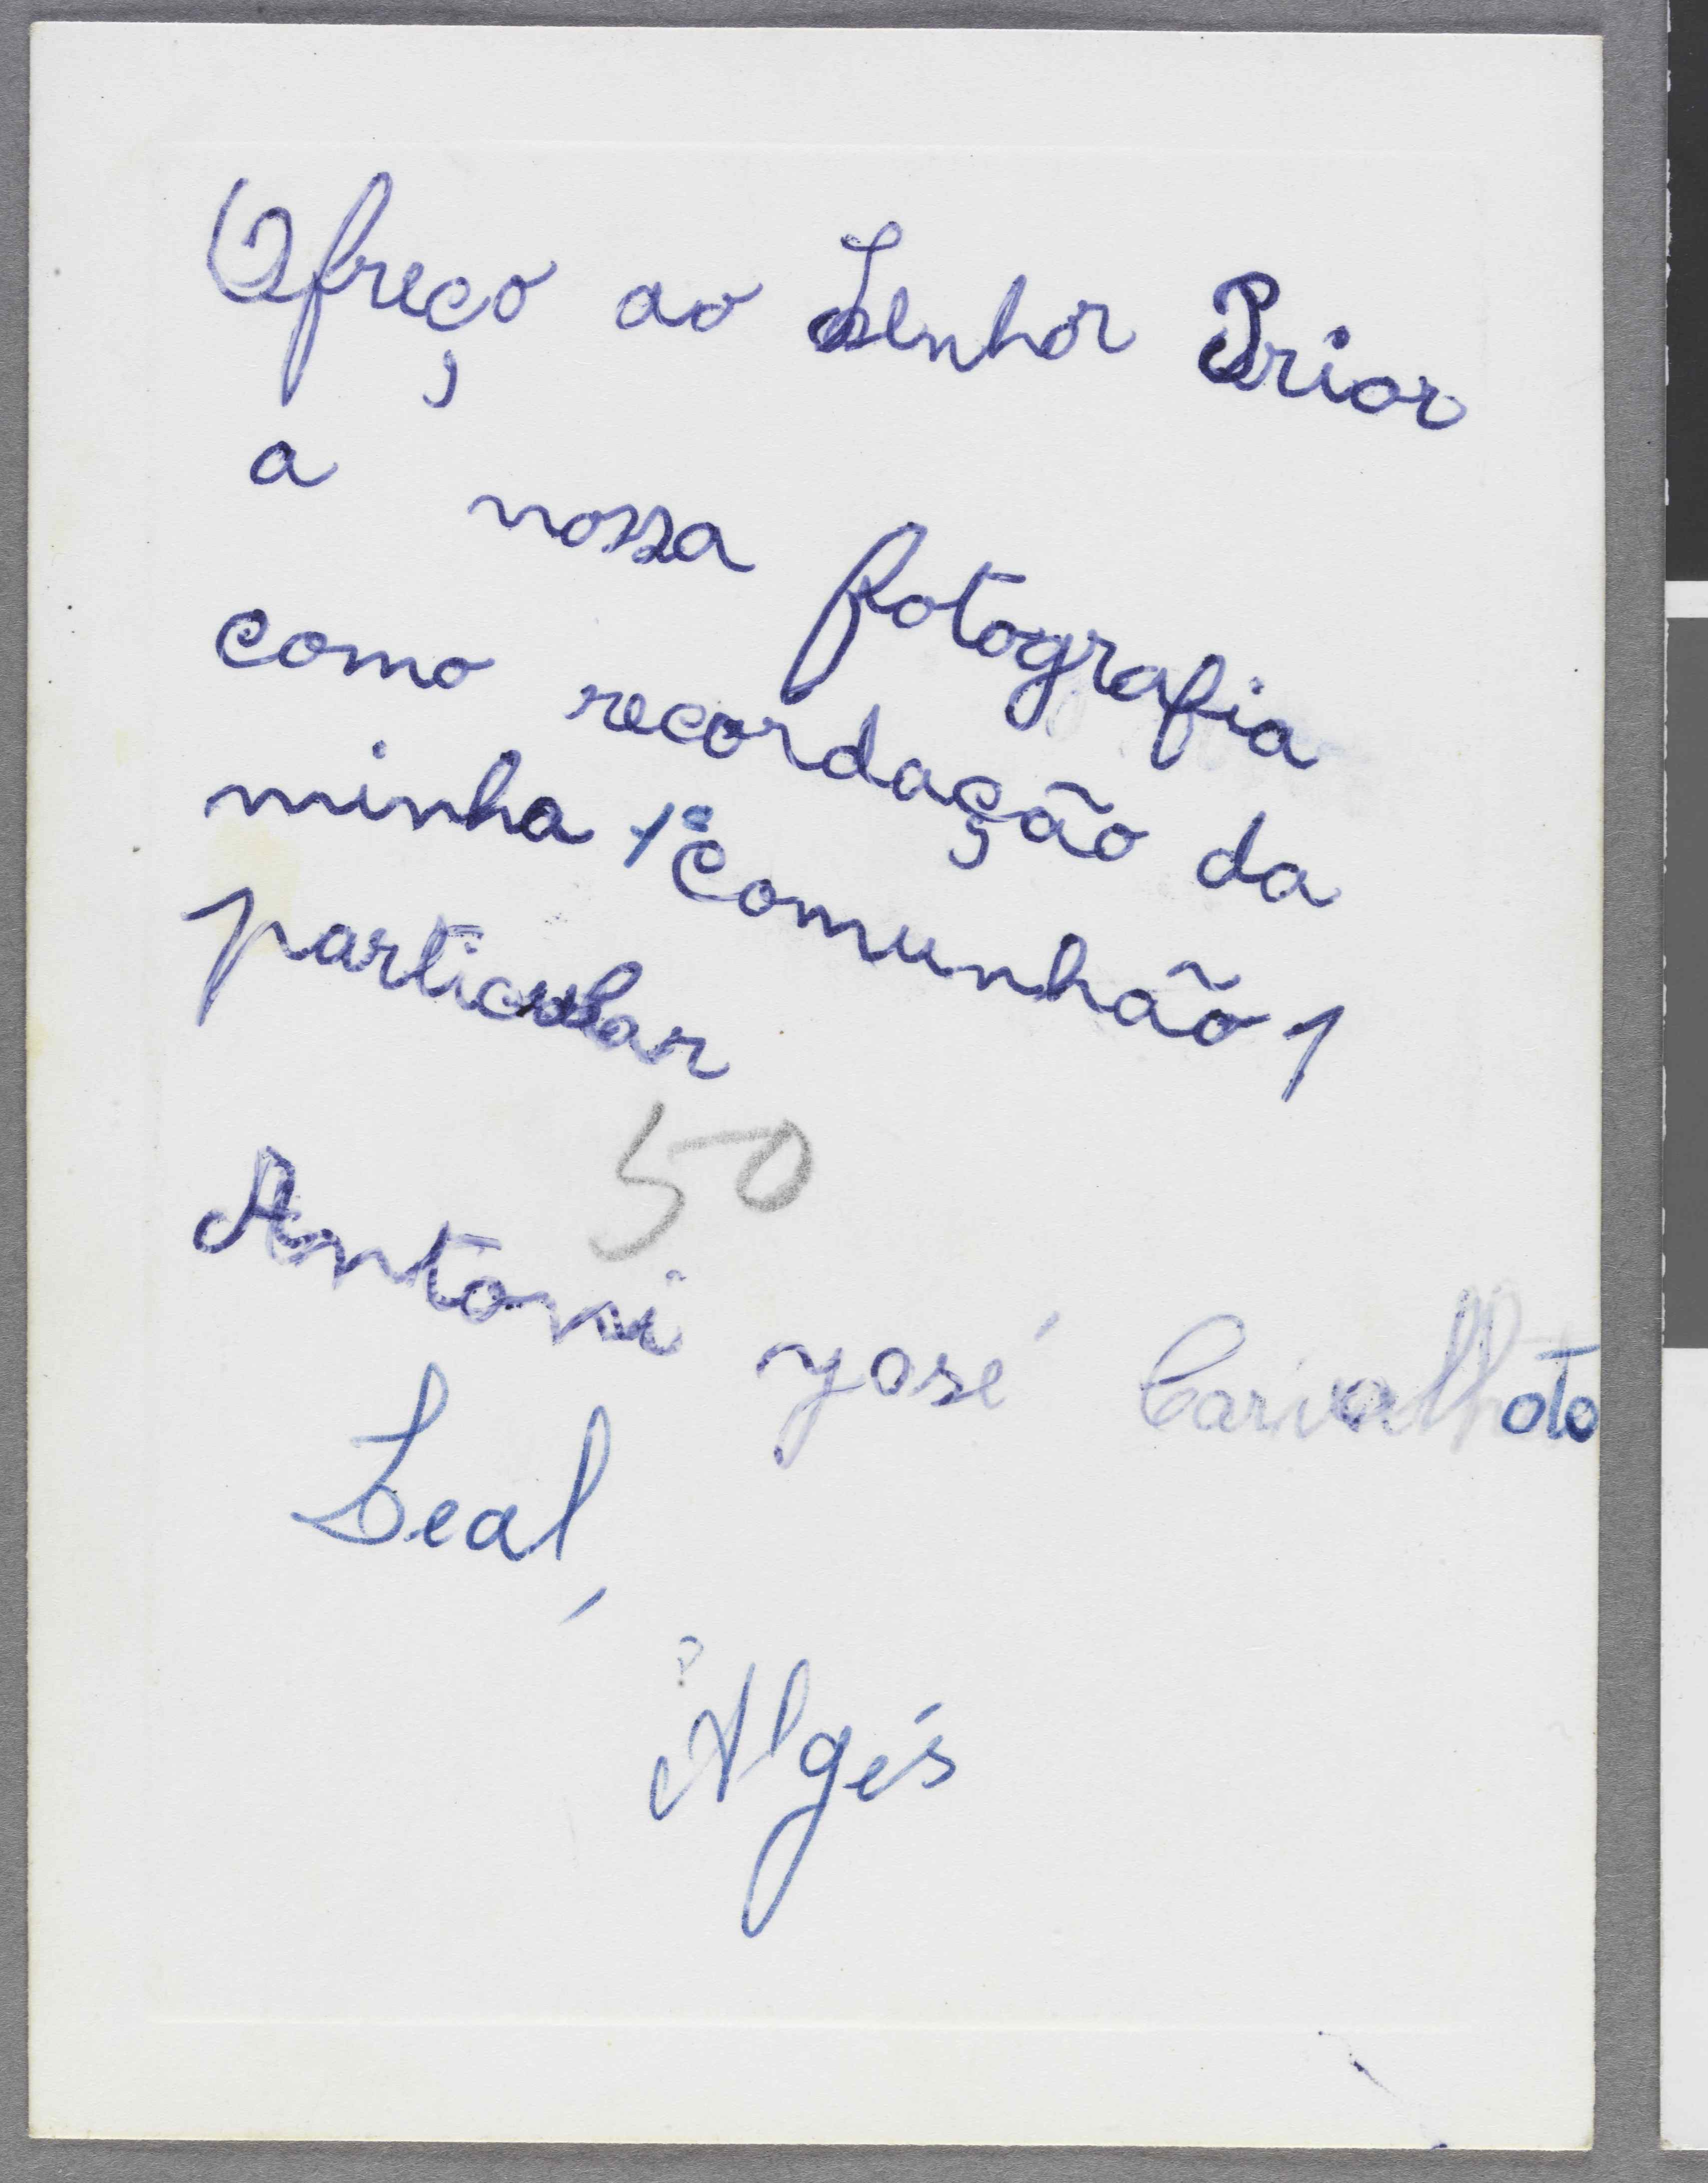 Ofreço ao Senhor Prior
a nossa fotografia
como recordação da
minha 1ª comunhão,
particular
50
Antoni José Carvalhoto
Leal,
Algés